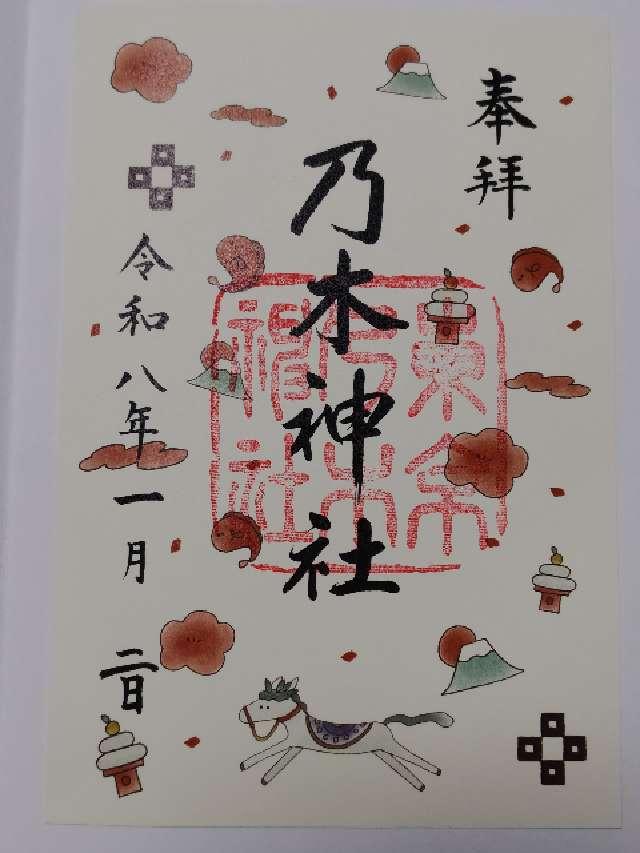 奉拝
乃木神社
令和八年一月二日
東京
乃木
神社